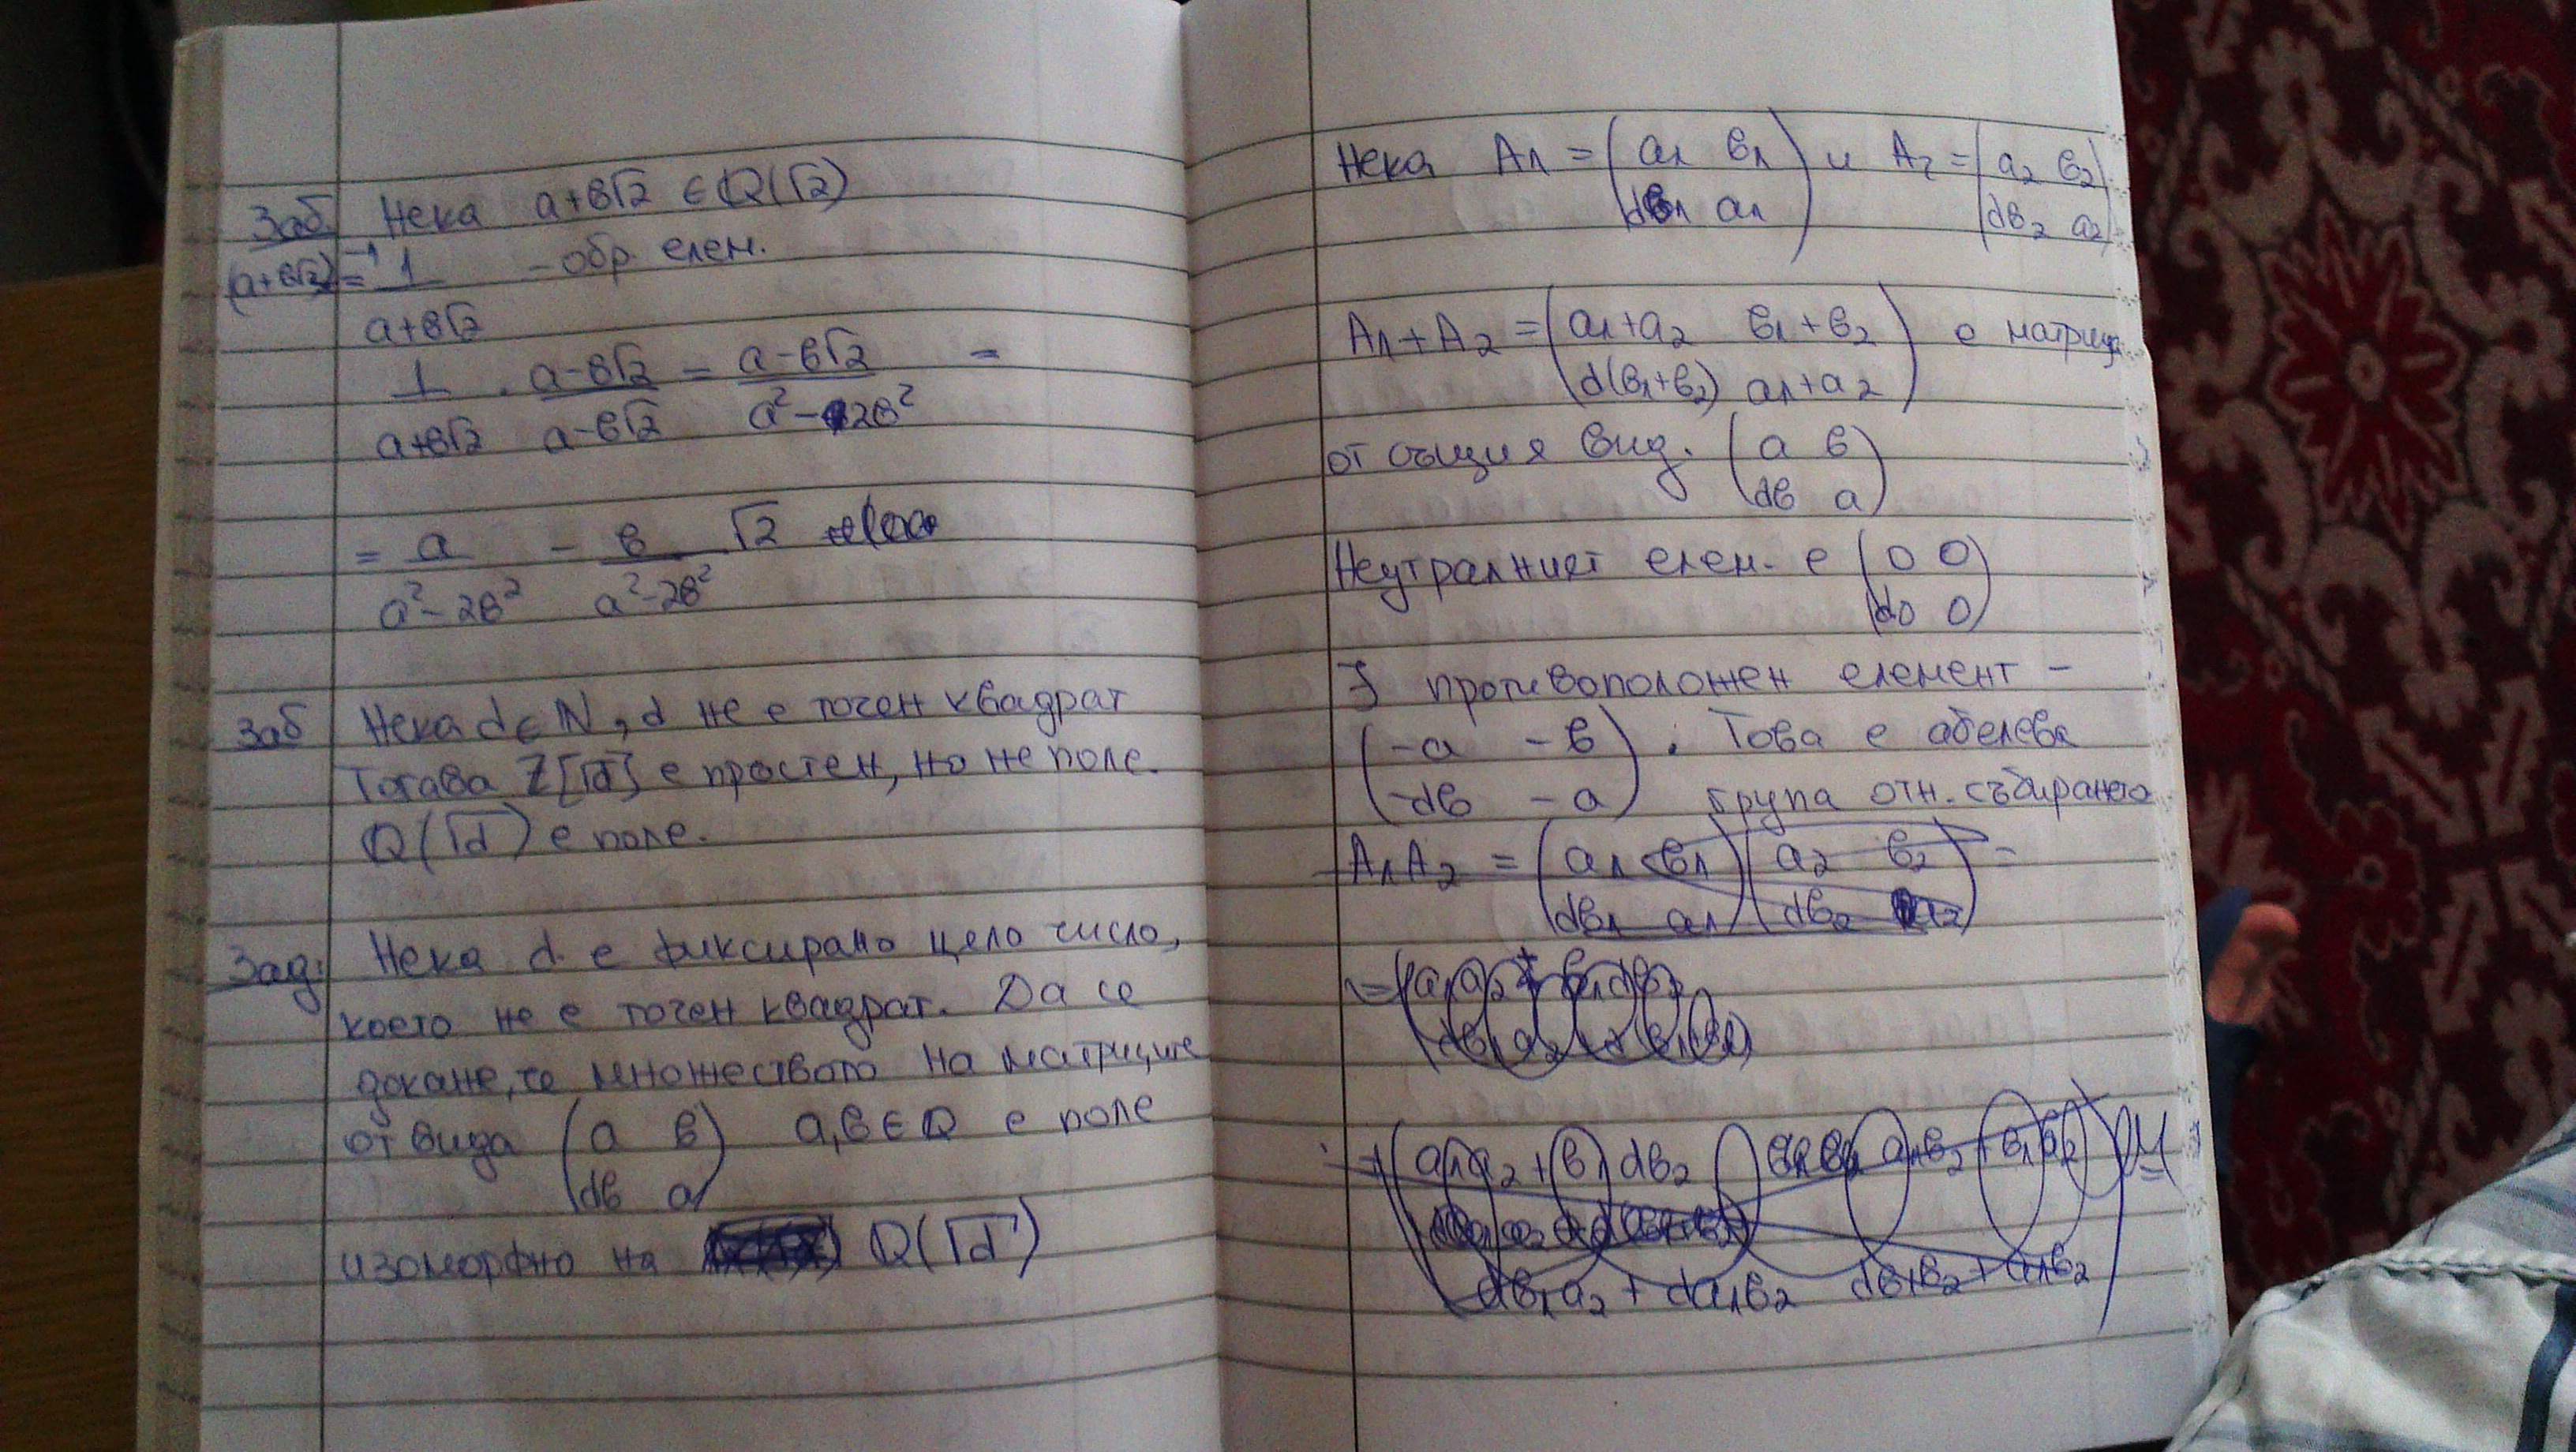 Заб. Нека a+b√2 ∈ Q(√2)
(a+b√2)⁻¹ = 1/(a+b√2) - обр. елем.
1/(a+b√2) · (a-b√2)/(a-b√2) = (a-b√2)/(a²-2b²) =
= a/(a²-2b²) - b/(a²-2b²) √2
Заб Нека d ∈ N, d не е точен квадрат
Тогава Z[√d] е простен, но не поле.
Q(√d) е поле.
Зад: Нека d е фиксирано цело число,
което не е точен квадрат. Да се
докаже, че множеството на матриците
от вида (a b) a,b ∈ Q е поле
(db a)
изоморфно на Q(√d)
Нека A₁ = (a₁ b₁) и A₂ = (a₂ b₂)
(db₁ a₁) (db₂ a₂)
A₁+A₂ = (a₁+a₂ b₁+b₂) е матрица
(d(b₁+b₂) a₁+a₂)
от същия вид. (a b)
(db a)
Неутралният елем. е (0 0)
(d0 0)
∃ противоположен елемент -
(-a -b). Това е абелева
(-db -a) група отн. събирането
A₁A₂ = (a₁ b₁)(a₂ b₂) =
(db₁ a₁)(db₂ a₂)
= (a₁a₂ + b₁db₂
(a₁a₂ + b₁db₂ a₁b₂ + b₁a₂)
db₁a₂ + da₁b₂ db₁b₂ + a₁b₂